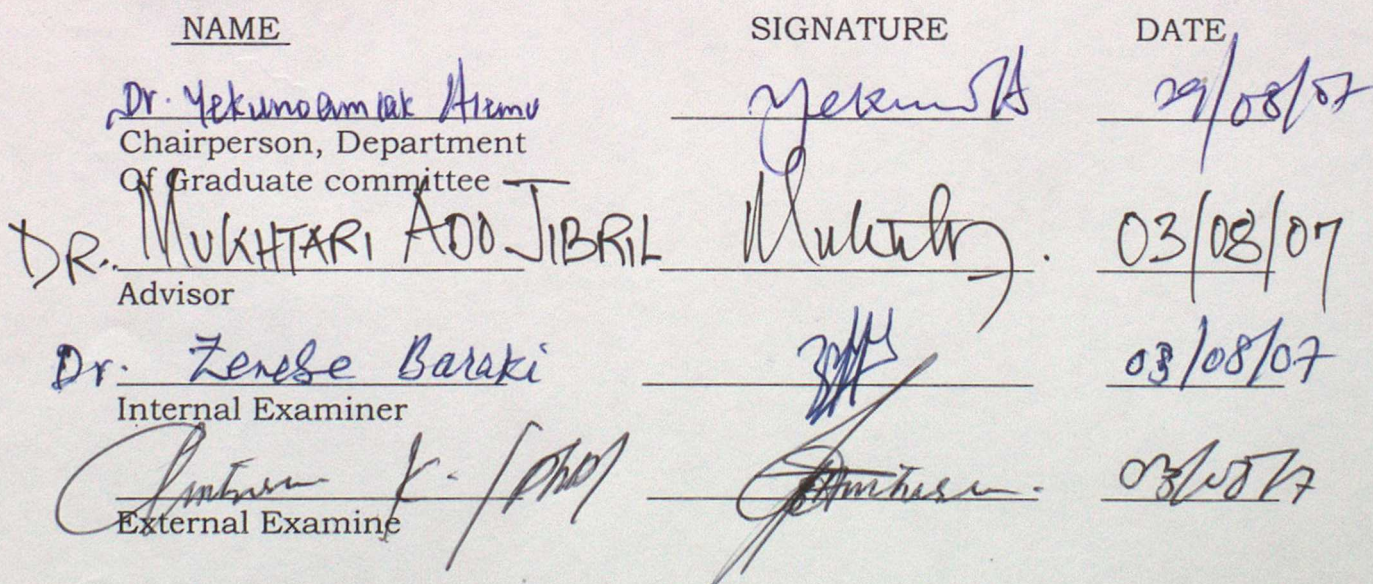 NAME SIGNATURE DATE
Dr. Yekunoamlak Alemu 29/08/07
Chairperson, Department
Of Graduate committee
DR. MUKHTARI ADO JIBRIL 03/08/07
Advisor
Dr. Zenebe Baraki 03/08/07
Internal Examiner
K. (PhD)
External Examine